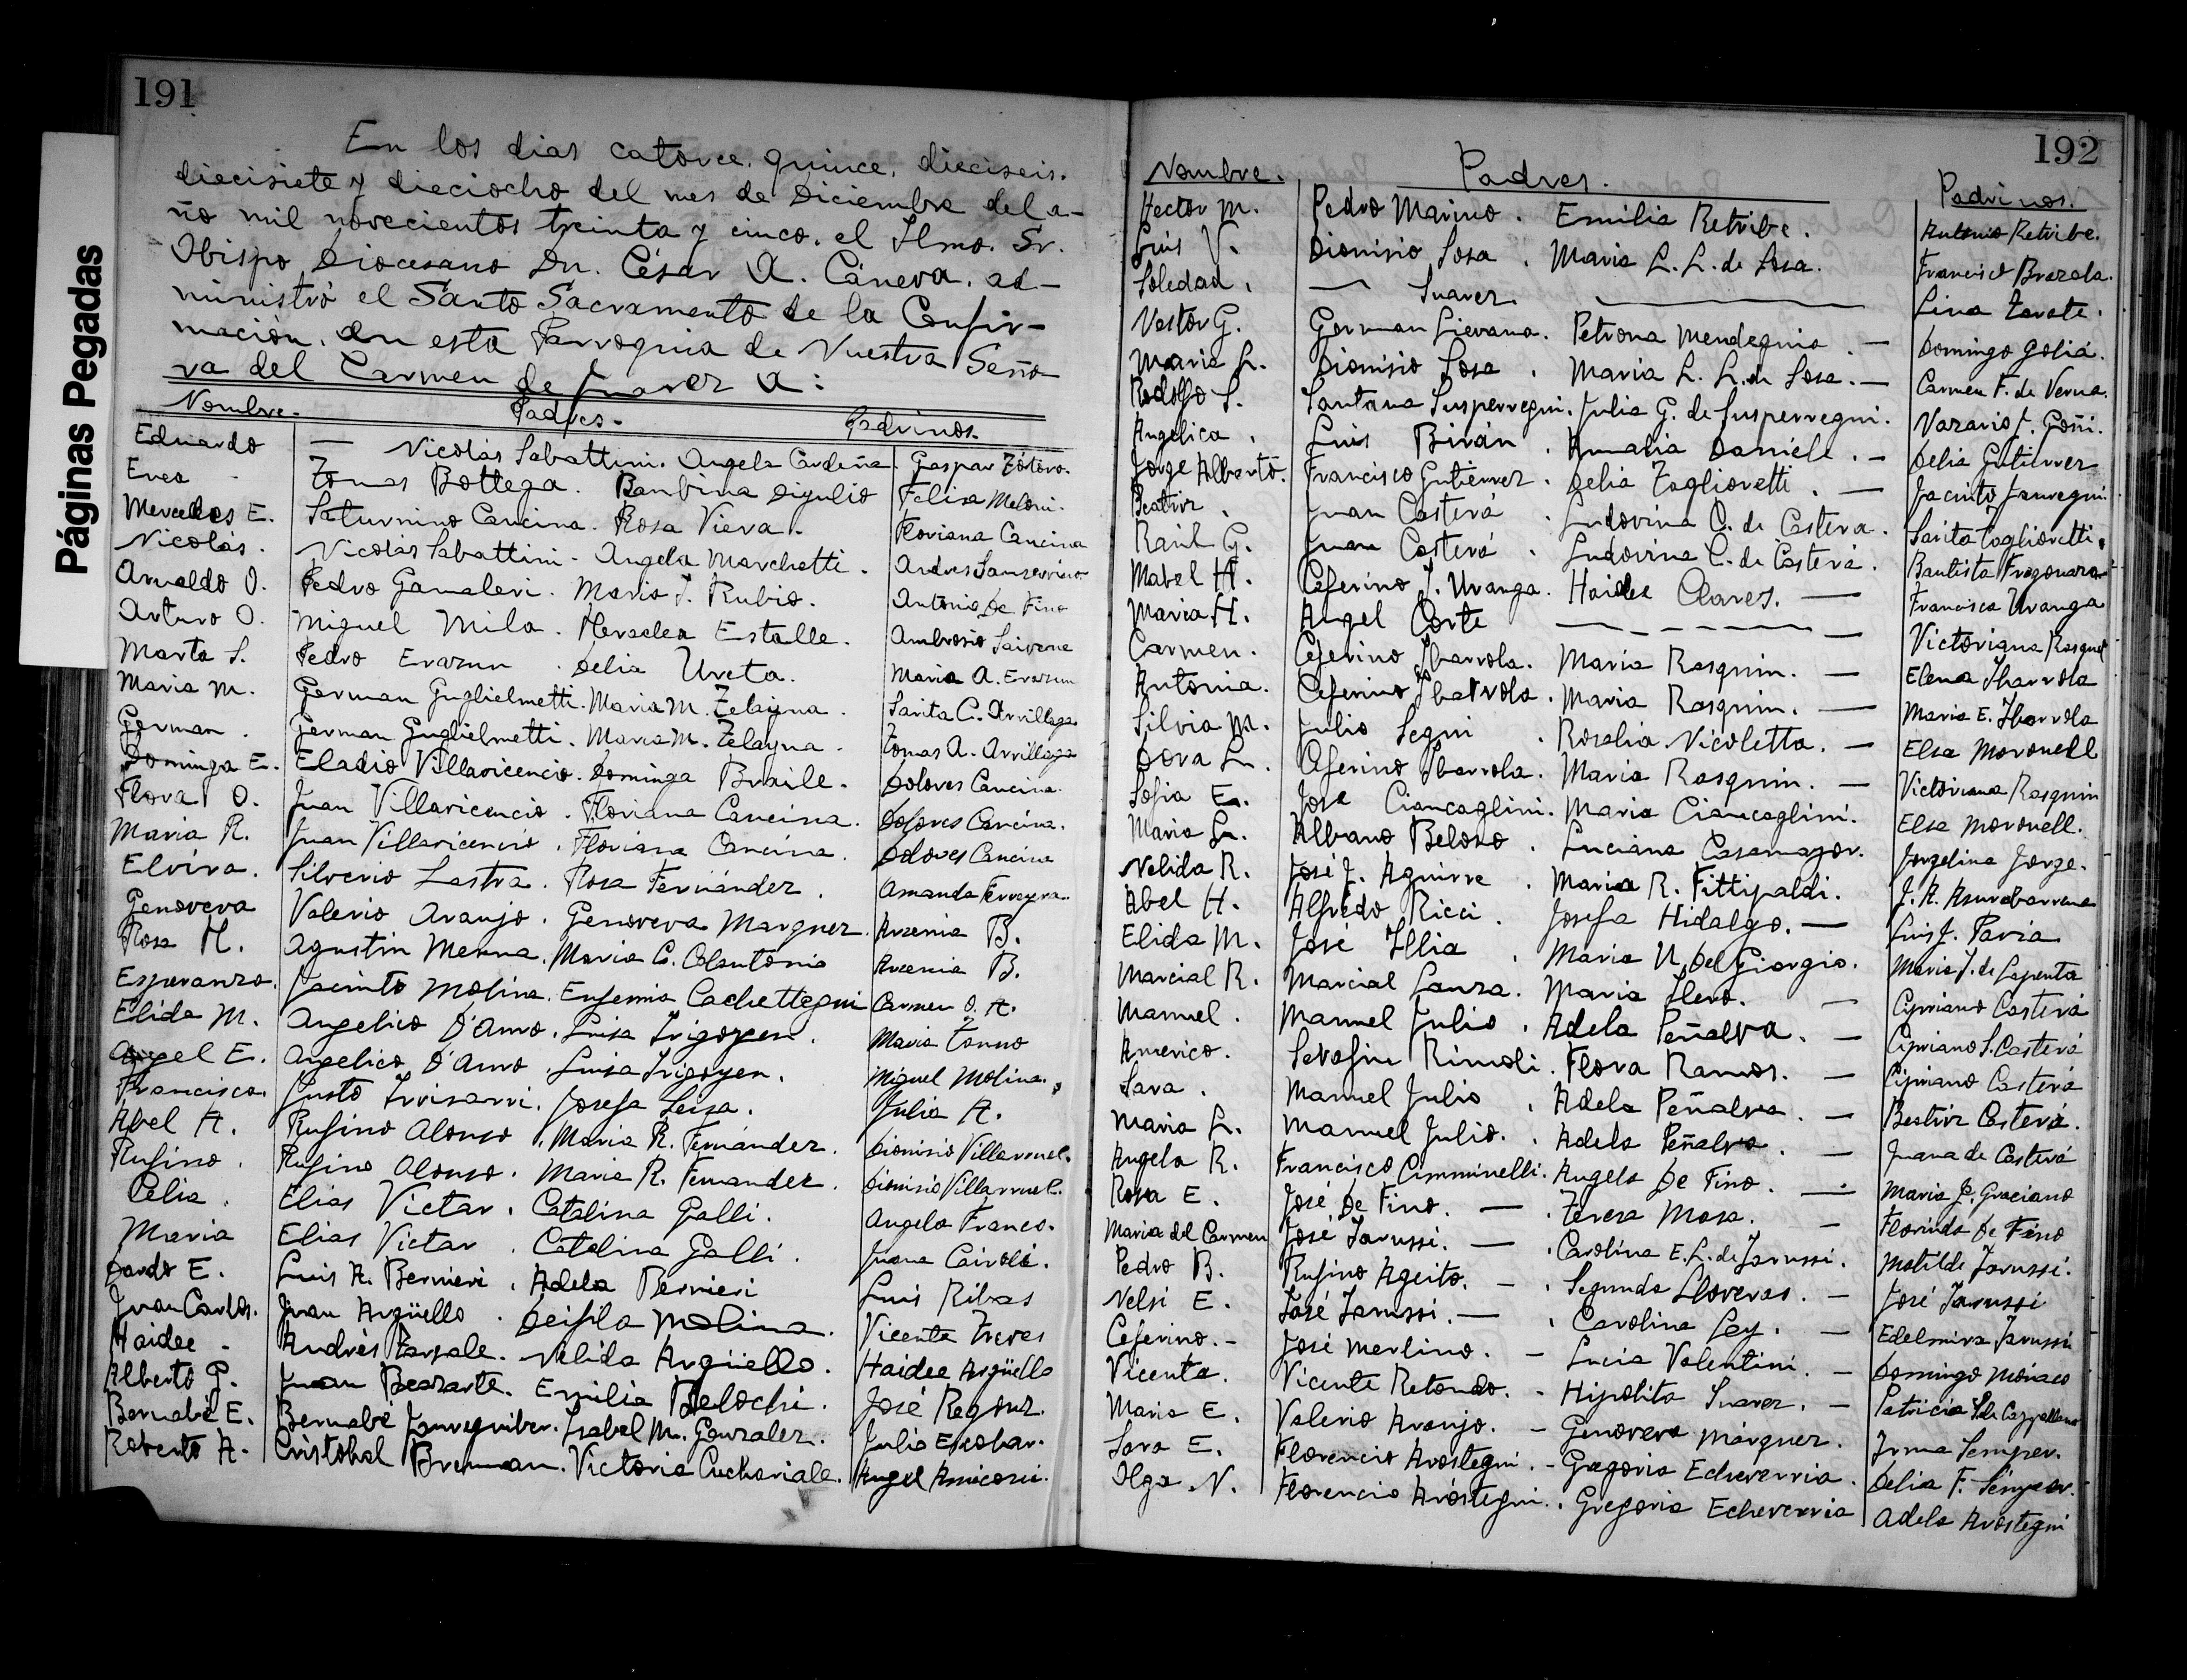 Páginas Pegadas
191
En los dias catorce, quince, dieciseis,
diecisiete y dieciocho del mes de Diciembre del a-
ño mil novecientos treinta y cinco, el Ilmo. Sr.
Obispo Diocesano Dn. César A. Cáneva, ad-
ministró el Santo Sacramento de la Confir-
mación, en esta Parroquia de Nuestra Seño
ra del Carmen de Juarez a:
Nombre. Padres. Padrinos.
Eduardo — Nicolás Sabattini. Angela Cardeña. Gaspar Tótoro.
Enea Tomas Bottega. Bambina Digulio Felisa Meloni.
Mercedes E. Saturnino Cancina. Rosa Viera. Floriana Cancina
Nicolás. Nicolás Sabattini. Angela Marchetti. Andres
Arnaldo O. Pedro Gamaleri. Maria J. Rubio. Antonia De Fino
Arturo O. Miguel Mila. Estalle. Ambrosio
Marta S. Pedro Erazun. Delia Ureta. Maria A. Erazun
Maria M. German Guglielmetti. Maria M. Zelayna. Sarita C. Arvillaga
German. German Guglielmetti. Maria M. Zelayna. Tomas A. Arvillaga
Dominga E. Eladio Villavicencio. Dominga Braile. Dolores Cancina.
Flora O. Juan Villavicencio. Floriana Cancina. Dolores Cancina.
Maria R. Juan Villavicencio. Floriana Cancina. Dolores Cancina
Elvira. Silverio Lastra. Rosa Fernández. Amanda Ferreyra.
Genoveva Valerio Araujo. Genoveva Marquez. Arsenia B.
Rosa M. Agustin Menna. Maria C. Colantonio Arsenia B.
Esperanza. Jacinto Molina. Eufemia Cachettegui Carmen O. A.
Elida M. Angelico D'Anno. Luisa Irigoyen. Maria Tanno
Angel E. Angelico D'Anno. Luisa Irigoyen. Miguel Molina.
Francisca. Justo Irisarri. Josefa Leiza. Julia A.
Abel A. Rufino Alonso. Maria R. Fernández. Dionisio Villarruel.
Rufino. Rufino Alonso. Maria R. Fernandez. Dionisio Villarruel.
Celia. Elias Victar. Catalina Galli. Angela Franco.
Maria Elias Victar. Catalina Galli. Juana Cairoli.
Pardo E. Luis A. Bernieri. Adela Bernieri Luis Ribas
Juan Carlos. Juan Argüello. Deifila Molina. Vicenta Treves
Haidee. Andrés Zarzale. Nelida Argüello. Haidee Argüello
Alberto P. Juan Beazarte. Emilia Belochi. José Regouz.
Bernabé E. Bernabé Jaureguiber. Isabel M. Gonzalez. Julia Escobar.
Roberto A. Cristobal Brennan. Victoria Angel Amicosi.
192
Nombre. Padres. Padrinos.
Hector M. Pedro Marino. Emilia Retribe. Antonio Retribe.
Luis V. Dionisio Sosa. Maria L. L. de Sosa. Francisco Brazola.
Soledad. — Suarez. — Lina Zarate.
Nestor G. German Lievana. Petrona Mendeguia. — Domingo Goliá.
Maria L. Dionisio Sosa. Maria L. L. de Sosa. — Carmen F. de Verna.
Rodolfo S. Santana Susperregui. Julia G. de Susperregui. Nazario J. Goñi.
Angelica. Luis Birán. Amalia Daniele. — Delia Gutierrez
Jorge Alberto. Francisco Gutierrez. Delia Taglioretti. — Jacinto Jauregui.
Beatriz. Juan Casterá. Ludovina C. de Castera. Sarita Taglioretti.
Raúl G. Juan Casterá. Ludovina C. de Casterá. Bautista Fragouara
Mabel H. Ceferino J. Uranga. Haidee Clares. — Francisca Uranga
Maria H. Angel Corte — Victoriana Rasquin
Carmen. Ceferino Ibarrola. Maria Rasquin. — Elena Ibarrola
Antonia. Ceferino Ibarrola. Maria Rasquin. — Maria E. Ibarrola
Silvia M. Julio Segui. Rosalia Nicoletta. — Elsa Moronell
Dora L. Ceferino Ibarrola. Maria Rasquin. — Victoriana Rasquin
Sofia E. Jose Ciancaglini. Maria Ciancaglini. Elsa Moronell.
Maria L. Albano Beloso. Luciana Casamayor. Jorgelina Jorge.
Nelida R. José J. Aguirre. Maria R. Fittipaldi. J. A.
Abel H. Alfredo Ricci. Josefa Hidalgo. — Luis J. Pavia
Elida M. José Illia. Maria N. Del Giorgio. Maria J. de Lapenta
Marcial R. Marcial Lanza. Maria Llero. — Cipriano Casterá
Manuel. Manuel Julio. Adela Peñalva. — Cipriano S. Casterá
Americo. Serafin Rimoli. Flora Ramos. — Cipriano Casterá
Sara. Manuel Julio. Adela Peñalva. — Beatriz Casterá.
Maria L. Manuel Julio. Adela Peñalva. — Juana de Casterá
Angela R. Francisco Cimminelli. Angela De Fino. — Maria J. Graciano
Rosa E. José De Fino. — Teresa Mosa. — Florinda De Fino
Maria del Carmen José Iarussi. — Carolina E. L. de Iarussi. Matilde Iarussi.
Pedro B. Rufino Ageito. — Segunda Lloveras. — José Iarussi
Nelsi E. José Iarussi. — Carolina Ley. — Edelmira Iarussi
Ceferino. — José Merlino. — Lucia Valentini. — Domingo Mónaco
Vicenta. Vicente Retondo. — Hipolita Suarez. — Patricia
Maria E. Valerio Araujo. — Genoveva Márquez. Irma Semper.
Sara E. Florencio Aróstegui. — Gregoria Echeverria. Delia F. Sémper.
Olga N. Florencio Aróstegui. Gregoria Echeverria Adela Aróstegui